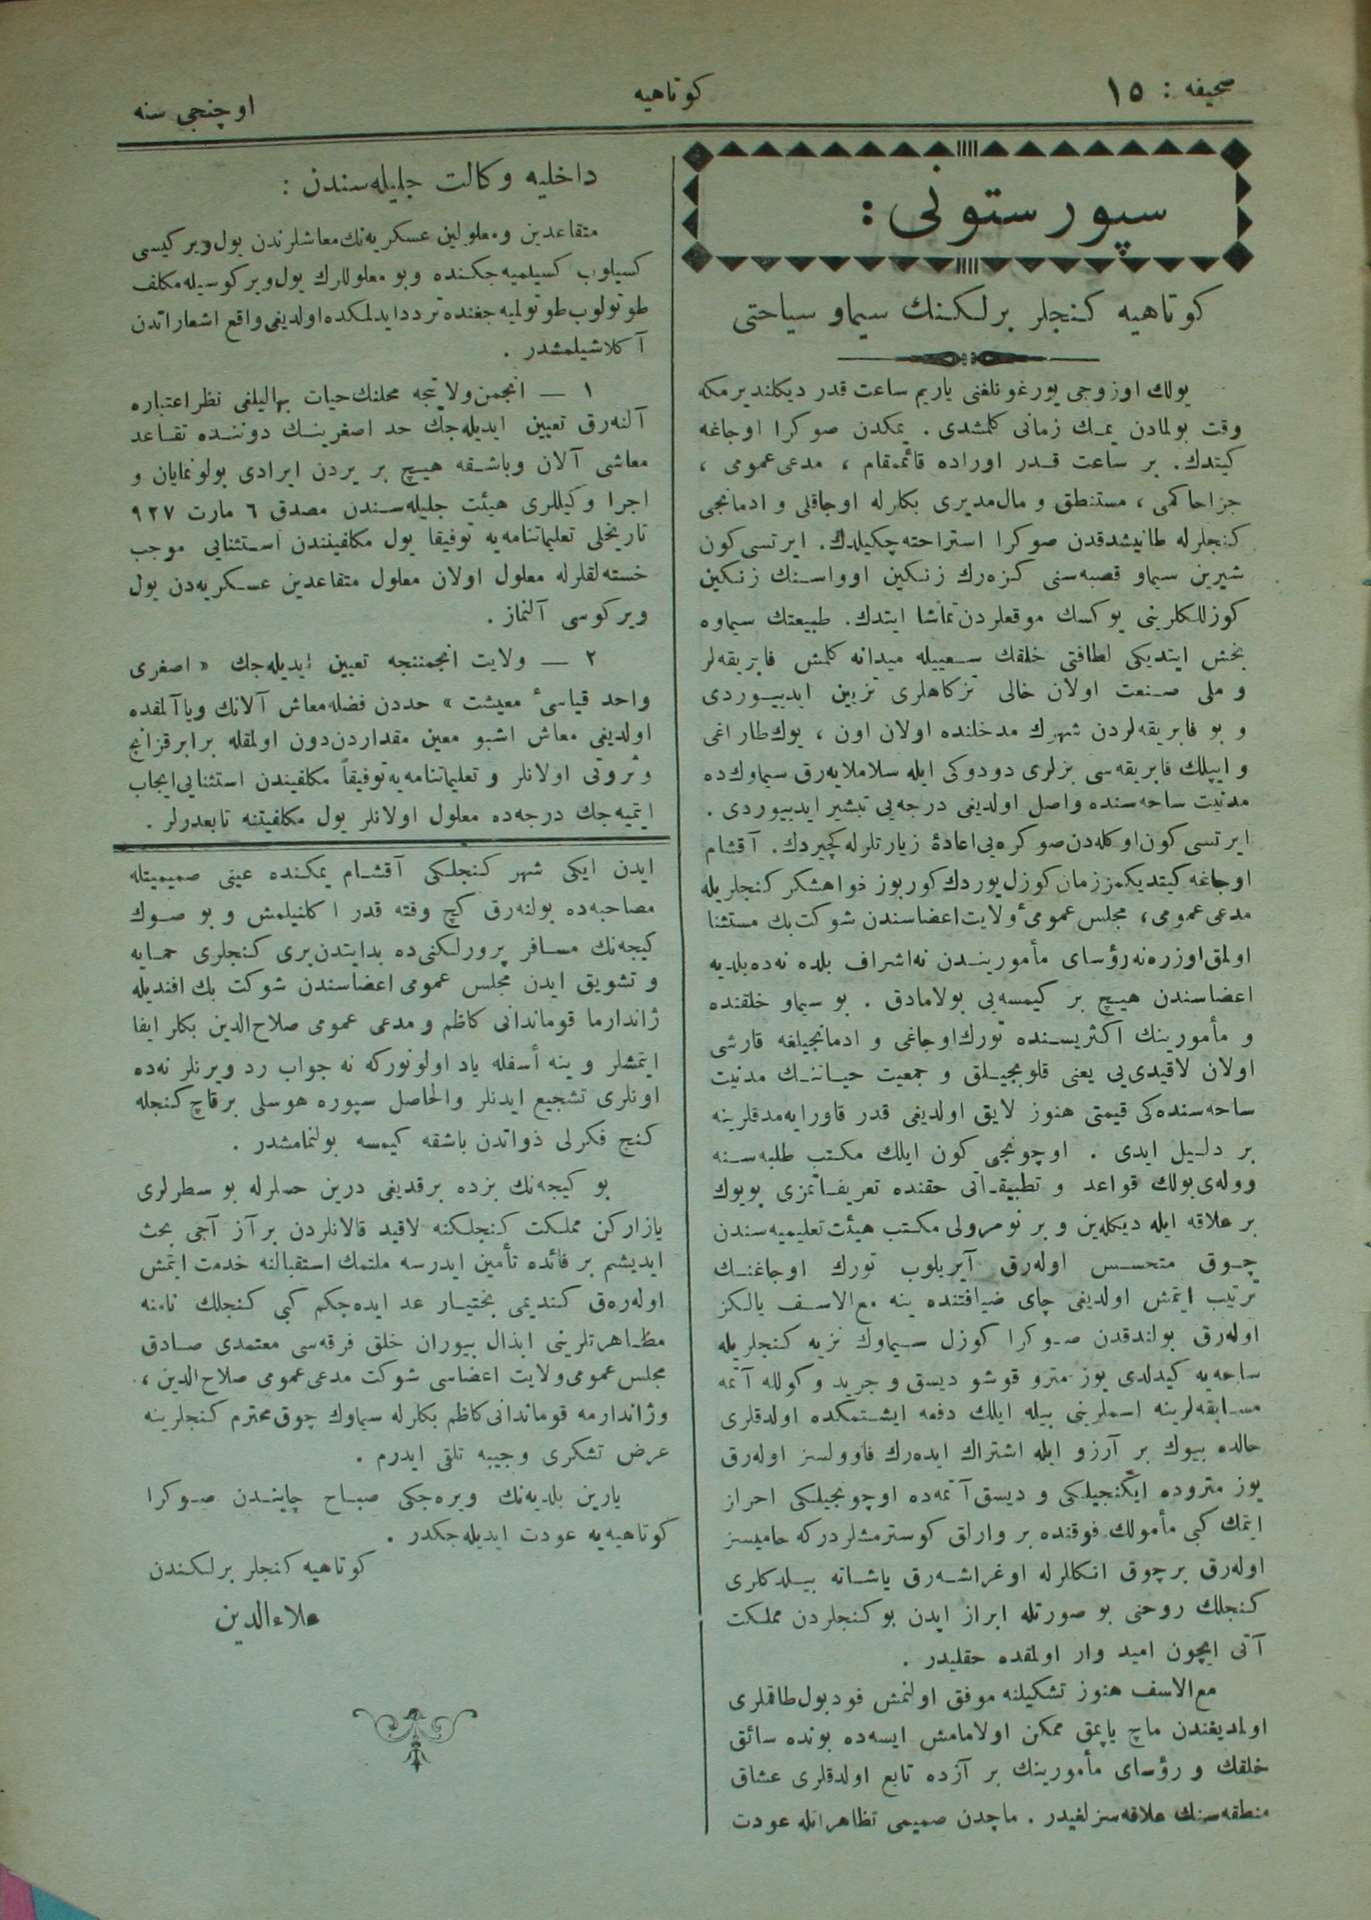 صحیفه : ١٥
كوتاهیه
اوچنجی سنه
سپور ستونی :
كوتاهیه كنجلر برلكنك سیماو سیاحتی
یولك اوزوجی یورغونلغنی یاریم ساعت قدر دیكلندیرمكه
وقت بولمادن یمك زمانی كلمشدی . یمكدن صوكرا اوجاغه
كیتدك. بر ساعت قدر اوراده قائممقام ، مدعی عمومی ،
جزا حاكمی ، مستنطق و مال مدیری بكلرله اوجاقلی و ادمانجی
كنجلرله طانیشدقدن صوكرا استراحته چكیلدك. ایرتسی كون
شیرین سیماو قصبه سنی كزه رك زنكین اوواسنك زنكین
كوزللكلرینی یوكسك موقعلردن تماشا ایتدك. طبیعتك سیماوه
بخش ایتدیكی لطافتی خلقك سعییله میدانه كلمش فابریقه لر
و ملی صنعت اولان خالی تزكاهلری تزیین ایدییوردی
و بو فابریقه لردن شهرك مدخلنده اولان اون ، یوك طاراغی
و ایپلك فابریقه سی بزلری دودوكی ایله سلاملایه رق سیماوك ده
مدنیت ساحه سنده واصل اولدیغی درجه یی تبشیر ایدییوردی .
ایرتسی كون اوكله دن صوكره یی اعادۀ زیارتلرله كچیردك. آقشام
اوجاغه كیتدیكمز زمان كوزل یوردك كوربوز خواهشكر كنجلریله
مدعی عمومی، مجلس عمومیٔ ولایت اعضاسندن شوكت بك مستثنا
اولمق اوزره نه رؤسای مأموریندن نه اشراف بلده نه ده بلدیه
اعضاسندن هیچ بر كیمسه یی بولامادق . بو سیماو خلقنده
و مأمورینك اكثریسنده تورك اوجاغی و ادمانجیلغه قارشی
اولان لاقیدی یی یعنی قلوبجیلق و جمعیت حیاتنك مدنیت
ساحه سنده كی قیمتی هنوز لایق اولدیغی قدر قاورایه مدقلرینه
بر دلیل ایدی . اوچونجی كون ایلك مكتب طلبه سنه
ووله ی بولك قواعد و تطبیقاتی حقنده تعریفاتمزی بویوك
بر علاقه ایله دیكله ین و بر نومرولی مكتب هیئت تعلیمیه سندن
چوق متحسس اوله رق آیریلوب تورك اوجاغنك
ترتیب ایتمش اولدیغی چای ضیافتنده ینه مع الاسف یالكز
اوله رق بولندقدن صوكرا كوزل سیماوك نزیه كنجلریله
ساحه یه كیدلدی یوز مترو قوشو دیسق و جرید و كولله آتمه
مسابقه لرینه اسملرینی بیله ایلك دفعه ایشتمكده اولدقلری
حالده بیوك بر آرزو ایله اشتراك ایده رك فاوولسز اوله رق
یوز متروده ایكنجیلكی و دیسق آتمه ده اوچونجیلكی احراز
ایتمك كبی مأمولك فوقنده بر وارلق كوسترمشلردركه حامیسز
اوله رق برچوق انكاللرله اوغراشه رق یاشاته بیلدكلری
كنجلك روحنی بو صورتله ابراز ایدن بو كنجلردن مملكت
آتی ایچون امید وار اولمقده حقلیدر .
مع الاسف هنوز تشكیلنه موفق اولنمش فودبول طاقملری
اولمدیغندن ماچ یاپمق ممكن اولامامش ایسه ده بونده سائق
خلقك و رؤسای مأمورینك بر آزده تابع اولدقلری عشاق
منطقه سنك علاقه سزلغیدر . ماچدن صمیمی تظاهراتله عودت
داخلیه وكالت جلیله سندن :
متقاعدین و معلولین عسكریه نك معاشلرندن یول ویركیسی
كسیلوب كسیلمیه جكنده و بو معلوللرك یول ویركوسیله مكلف
طوتولوب طوتولمیه جغنده تردد ایدلمكده اولدیغی واقع اشعاراتدن
آكلاشیلمشدر .
١ — انجمن ولایتجه محلنك حیات بهالیلغی نظر اعتباره
آلنه رق تعیین ایدیله جك حد اصغرینك دوننده تقاعد
معاشی آلان و باشقه هیچ بر یردن ایرادی بولونمایان و
اجرا وكیللری هیئت جلیله سندن مصدق ٦ مارت ٩٢٧
تاریخلی تعلیماتنامه یه توفیقا یول مكلفیتندن استثنایی موجب
خسته لقلرله معلول اولان معلول متقاعدین عسكریه دن یول
ویركوسی آلنماز .
٢ — ولایت انجمننجه تعیین ایدیله جك « اصغری
واحد قیاسیٔ معیشت » حددن فضله معاش آلانك ویا آلمقده
اولدیغی معاش اشبو معین مقداردن دون اولمقله برابر قزانج
و ثروتی اولانلر و تعلیماتنامه یه توفیقاً مكلفیتدن استثنایی ایجاب
ایتمیه جك درجه ده معلول اولانلر یول مكلفیتنه تابعدرلر .
ایدن ایكی شهر كنجلكی آقشام یمكنده عینی صمیمیتله
مصاحبه ده بولنه رق كچ وقته قدر اكلنیلمش و بو صوك
كیجه نك مسافر پرورلكنی ده بدایتدن بری كنجلری حمایه
و تشویق ایدن مجلس عمومی اعضاسندن شوكت بك افندیله
ژاندارما قوماندانی كاظم و مدعی عمومی صلاح الدین بكلر ایفا
ایتمشلر و ینه أسفله یاد اولونوركه نه جواب رد ویرنلر نه ده
اونلری تشجیع ایدنلر والحاصل سپوره هوسلی بر قاچ كنجله
كنج فكرلی ذواتدن باشقه كیمسه بولنمامشدر .
بو كیجه نك بزده براقدیغی درین حسلرله بو سطرلری
یازاركن مملكت كنجلكنه لاقید قالانلردن بر آز آجی بحث
ایدیشم بر فائده تأمین ایدرسه ملتمك استقبالنه خدمت ایتمش
اوله رق كندیمی بختیار عد ایده جكم كبی كنجلك نامنه
مظاهرتلرینی ابذال بیوران خلق فرقه سی معتمدی صادق
مجلس عمومی ولایت اعضاسی شوكت مدعی عمومی صلاح الدین ،
و ژاندارمه قوماندانی كاظم بكلرله سیماوك چوق محترم كنجلرینه
عرض تشكری وجیبه تلقی ایدرم .
یارین بلدیه نك ویره جكی صباح چایندن صوكرا
كوتاهیه یه عودت ایدیله جكدر .
كوتاهیه كنجلر برلكندن
علاء الدین